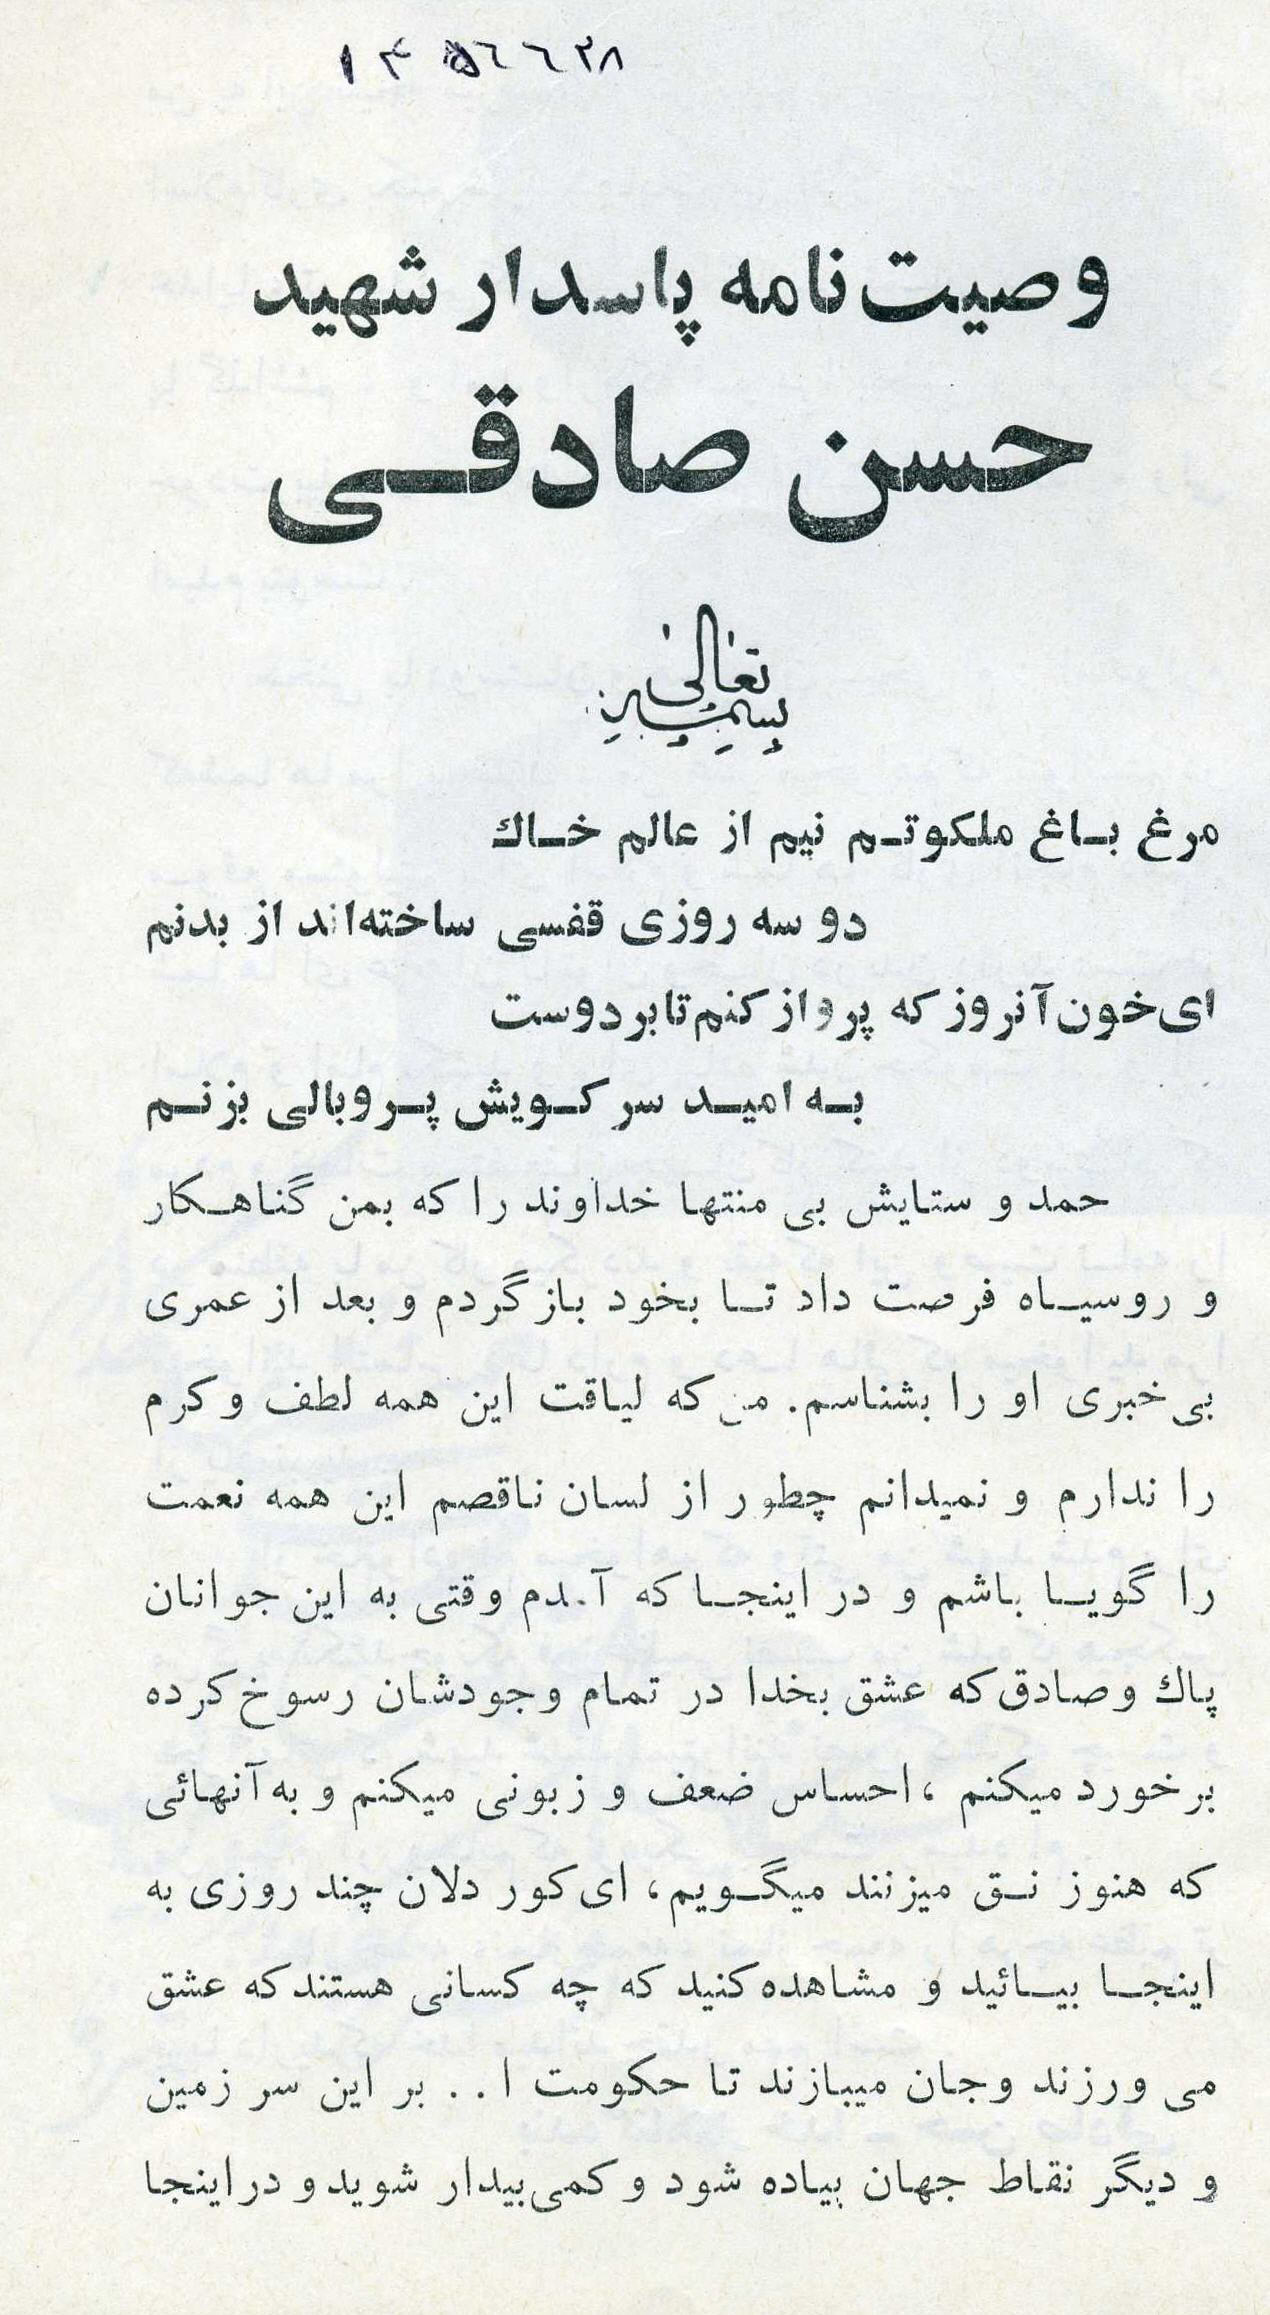 ۱۴۵۶۶۲۸
وصیت‌نامه پاسدار شهید
حسن صادقی
بسمه تعالی
مرغ بـاغ ملکوتـم نیم از عالم خـاك
دو سه روزی قفسی ساخته‌اند از بدنم
ای‌خون آنروز که پرواز کنم تا بر دوست
بـه امیـد سر کـویش پـر وبالی بزنـم
حمد و ستایش بی منتها خداوند را که بمن گناهـکار
و روسیـاه فرصت داد تـا بخود باز گردم و بعد از عمری
بی‌خبری او را بشناسم. من که لیاقت این همه لطف و کرم
را ندارم و نمیدانم چطور از لسان ناقصم این همه نعمت
را گویـا باشم و در اینجـا که آمدم وقتی به این جوانان
پاك وصادق که عشق بخدا در تمام وجودشان رسوخ کرده
برخورد میکنم ،احساس ضعف و زبونی میکنم و به آنهائی
که هنوز نـق میزنند میگـویم، ای کور دلان چند روزی به
اینجـا بیـائید و مشاهده کنید که چه کسانی هستند که عشق
می ورزند وجان میبازند تا حکومت ا.. بر این سر زمین
و دیگر نقاط جهان پیاده شود و کمی بیدار شوید و در اینجا